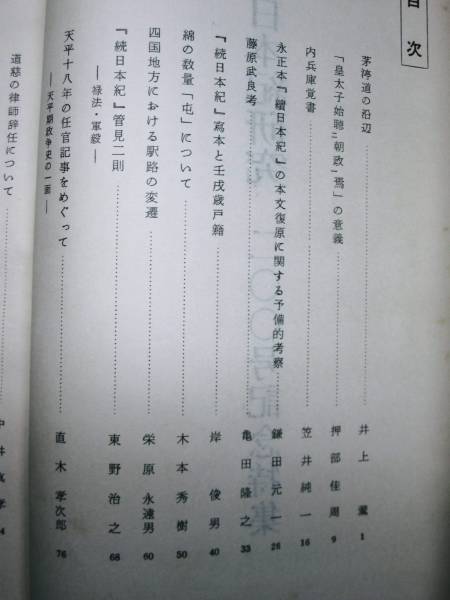 目次
茅渟道の沿辺……井上薫 1
「皇太子始聴二朝政一焉」の意義……押部佳周 9
内兵庫覚書……笠井純一 16
永正本『續日本紀』の本文復原に関する予備的考察……鎌田元一 26
藤原武良考……亀田隆之 33
『続日本紀』寫本と壬戌歳戸籍……岸俊男 40
綿の数量「屯」について……木本秀樹 50
四国地方における駅路の変遷……栄原永遠男 60
『続日本紀』管見二則
——祿法・軍毅——……東野治之 68
天平十八年の任官記事をめぐって
——天平期政争史の一面——……直木孝次郎 76
道慈の律師辞任について……
二〇〇号記念特集